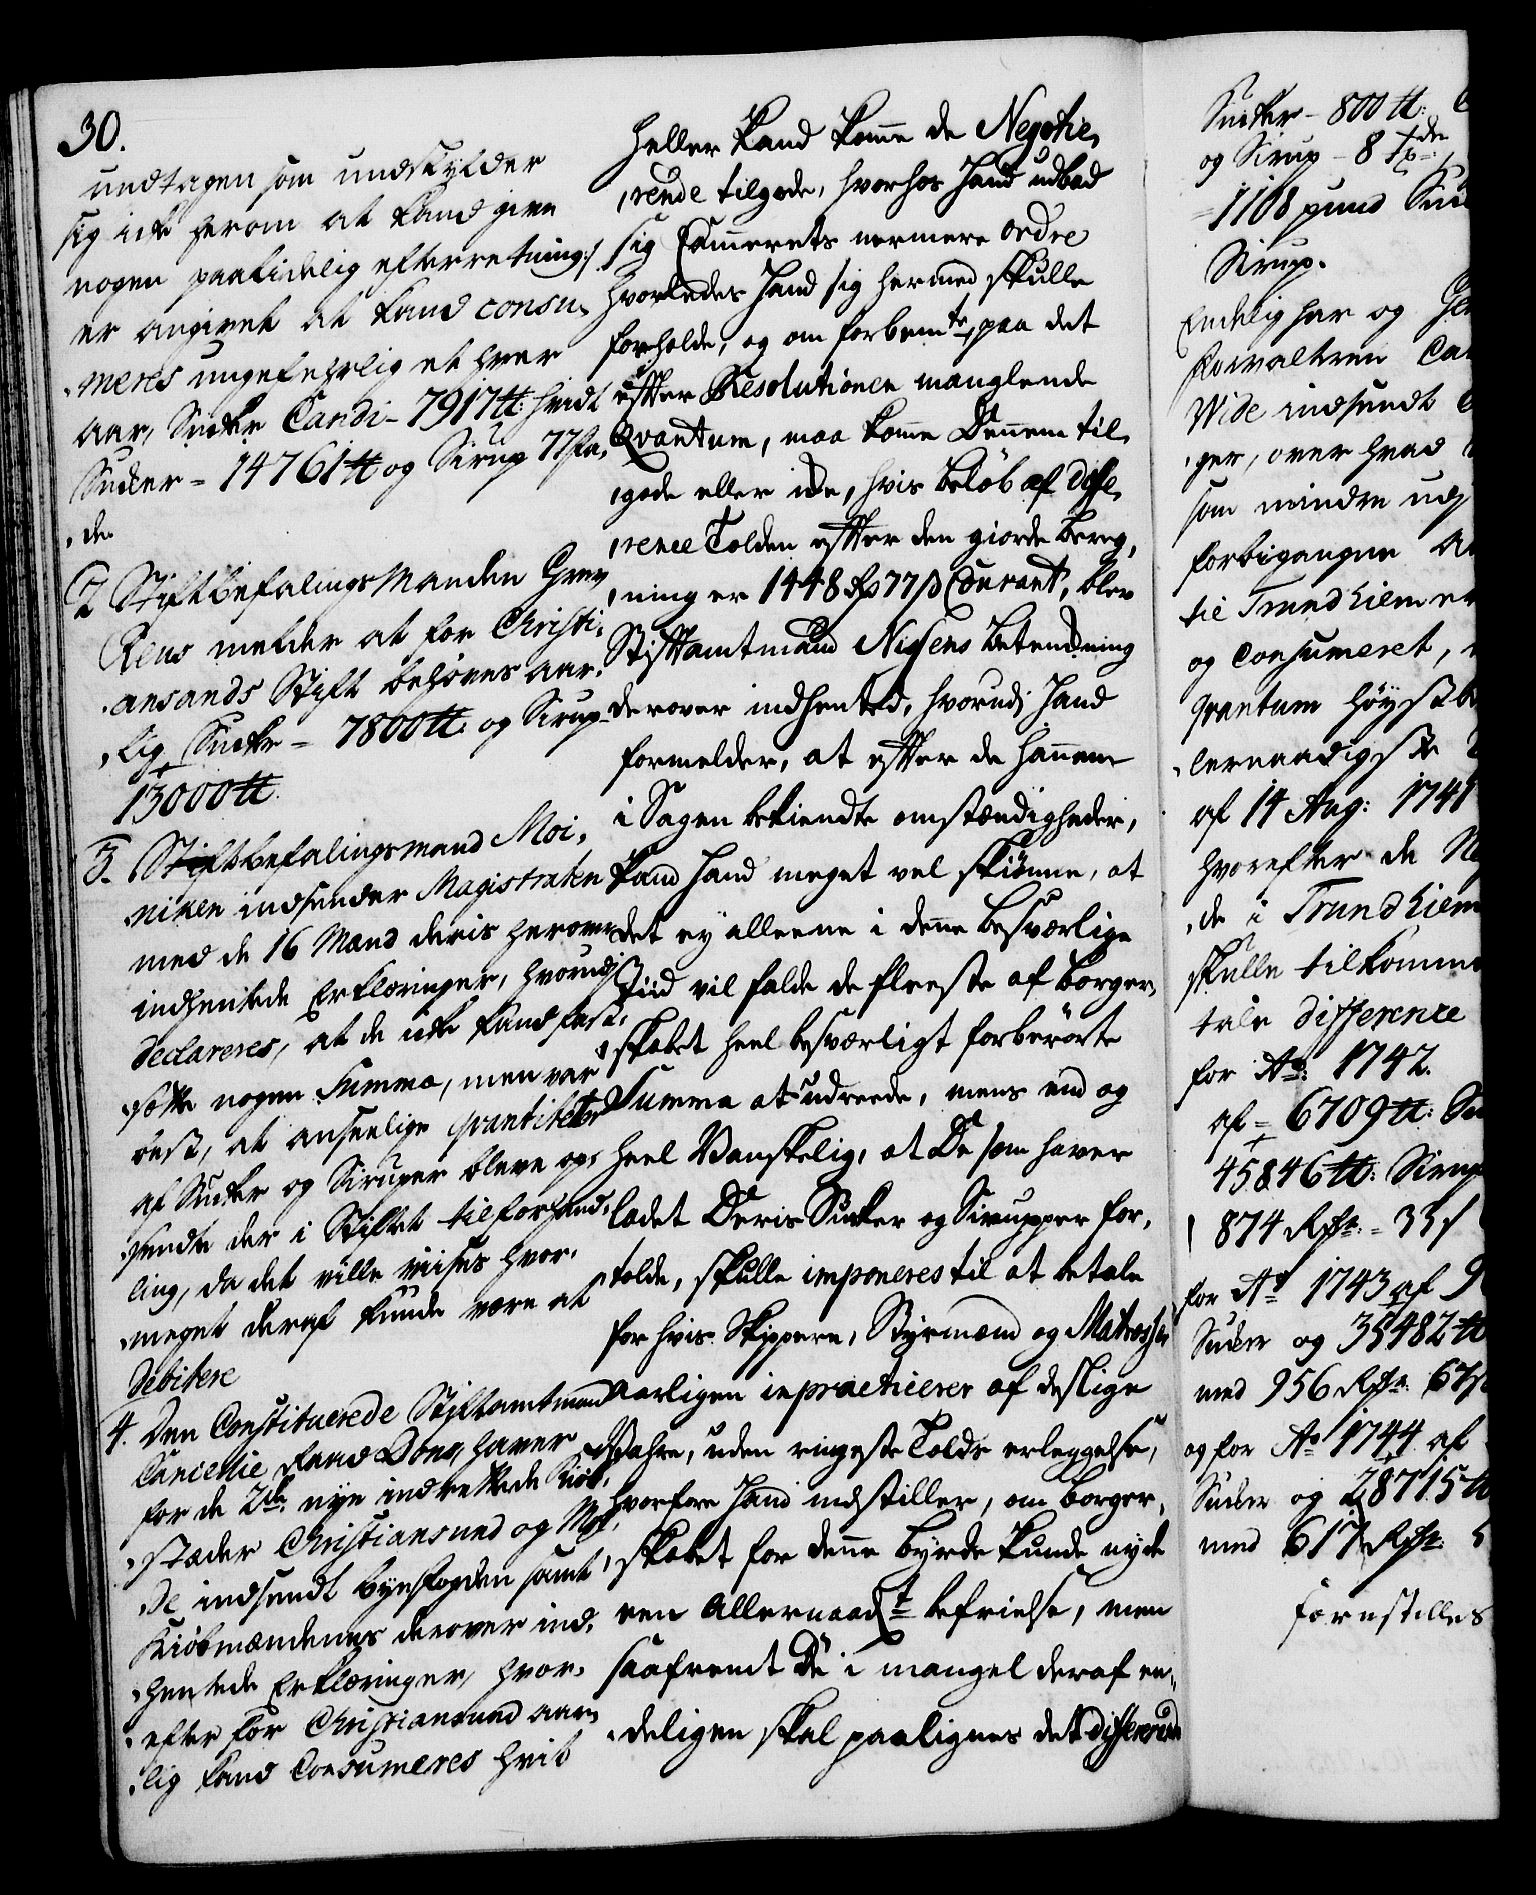 30.
undtagen som undskylder
sig icke herom at kand give
nogen paalidelig efterretning:/
er angivet at kand consu-
meres ungefehrlig et hver
aar, Sucker Candi - 7917 ℔: hvidt
Sucker = 14761 ℔ og Sirup 77 fa-
de.
2 Stiftbefalings Manden Grev
Reus melder at for Christi-
ansands Stift behøves aar-
lig Sucker = 7800 ℔. og Sirup
13000 ℔.
3. Stiftsbefalingsmand Moi-
niken indsender Magistraten
med de 16 Mænd deris herom
indhentede Erklæringer, hvorudj
declareres, at de icke kand fast-
sætte nogen Summa, men var
best, at anseelige qvantiteter
af Sucker og Siruper bleve op-
sendte der i Stiftet til forhand-
ling, da det ville viises hvor-
meget deraf kunde være at
debitere
4. Den Constituerede Stiftamtmand
Cancellie Raad Dons haver
for de 2de nye indrettede Kiøb-
stæder Christiansund og Mol-
de indsendt byefogden samt
Kiøbmændenes derover ind-
hentede Erklæringer, hvor-
efter for Christiansund aar-
lig kand Consumeres hvit
heller kand komme de Negotie-
rende tilgode, hvorhos hand udbad
sig Cammerets nermere ordre
hvorledes hand sig hermed skulle
forholde, og om forbemte paa det
efter Resolutionen manglende
Qvantum, maa komme Dennem til-
gode eller icke, hvis beløb af diffe-
rence Tolden efter den giorde bereg-
ning er 1448 Rd 77 ß Courant, blev
Stiftamtmand Nissens betenckning
derover indhented, hvorudj hand
formelder, at efter de hannem
i Sagen bekiendte omstændigheder,
kand hand meget vel skiønne, at
det ey alleene i denne besværlige
Tiid vil falde de fleeste af borger-
skabet heel besværligt forberørte
Summa at udreede, mens end og
heel Vanskelig, at De som haver
ladet Deris Sucker og Sirupper for-
tolde, skulle imponeres til at betale
for hvis Skippere, Styrmænd og Matrosser
aarligen inpracticerer af deslige
Vahre, uden ringeste Tolds erleggelse,
hvorfore hand indstiller, om borger-
skabet for denne byrde kunde nyde
een Allernaadt befrielse, men
saafremt De i mangel deraf en-
deligen skal paalignes det differerende
Sucker - 800 ℔:
og Sirup - 8 Tdr
1108 pund
Sirup.
Endelig har og
forvalteren
Wide indsendt
ger, over hvad
som mindre
forbigangne
til Trundhiem
og Consumeret,
qvantum høyst
lernaadigste
af 14 Aug: 1741
hvorefter de
de i Trundhiem
skulle tilkomme
tale difference
for Ao: 1742.
af = 6709 ℔:
45846 ℔: Sirup
874 Rdr. = 33 ß
for Ao 1743 af
Sucker og 35482 ℔
med 956 Rdr: 67 ß
og for Ao 1744 af
Sucker og 28715 ℔
med 617 Rdr:
forestilles